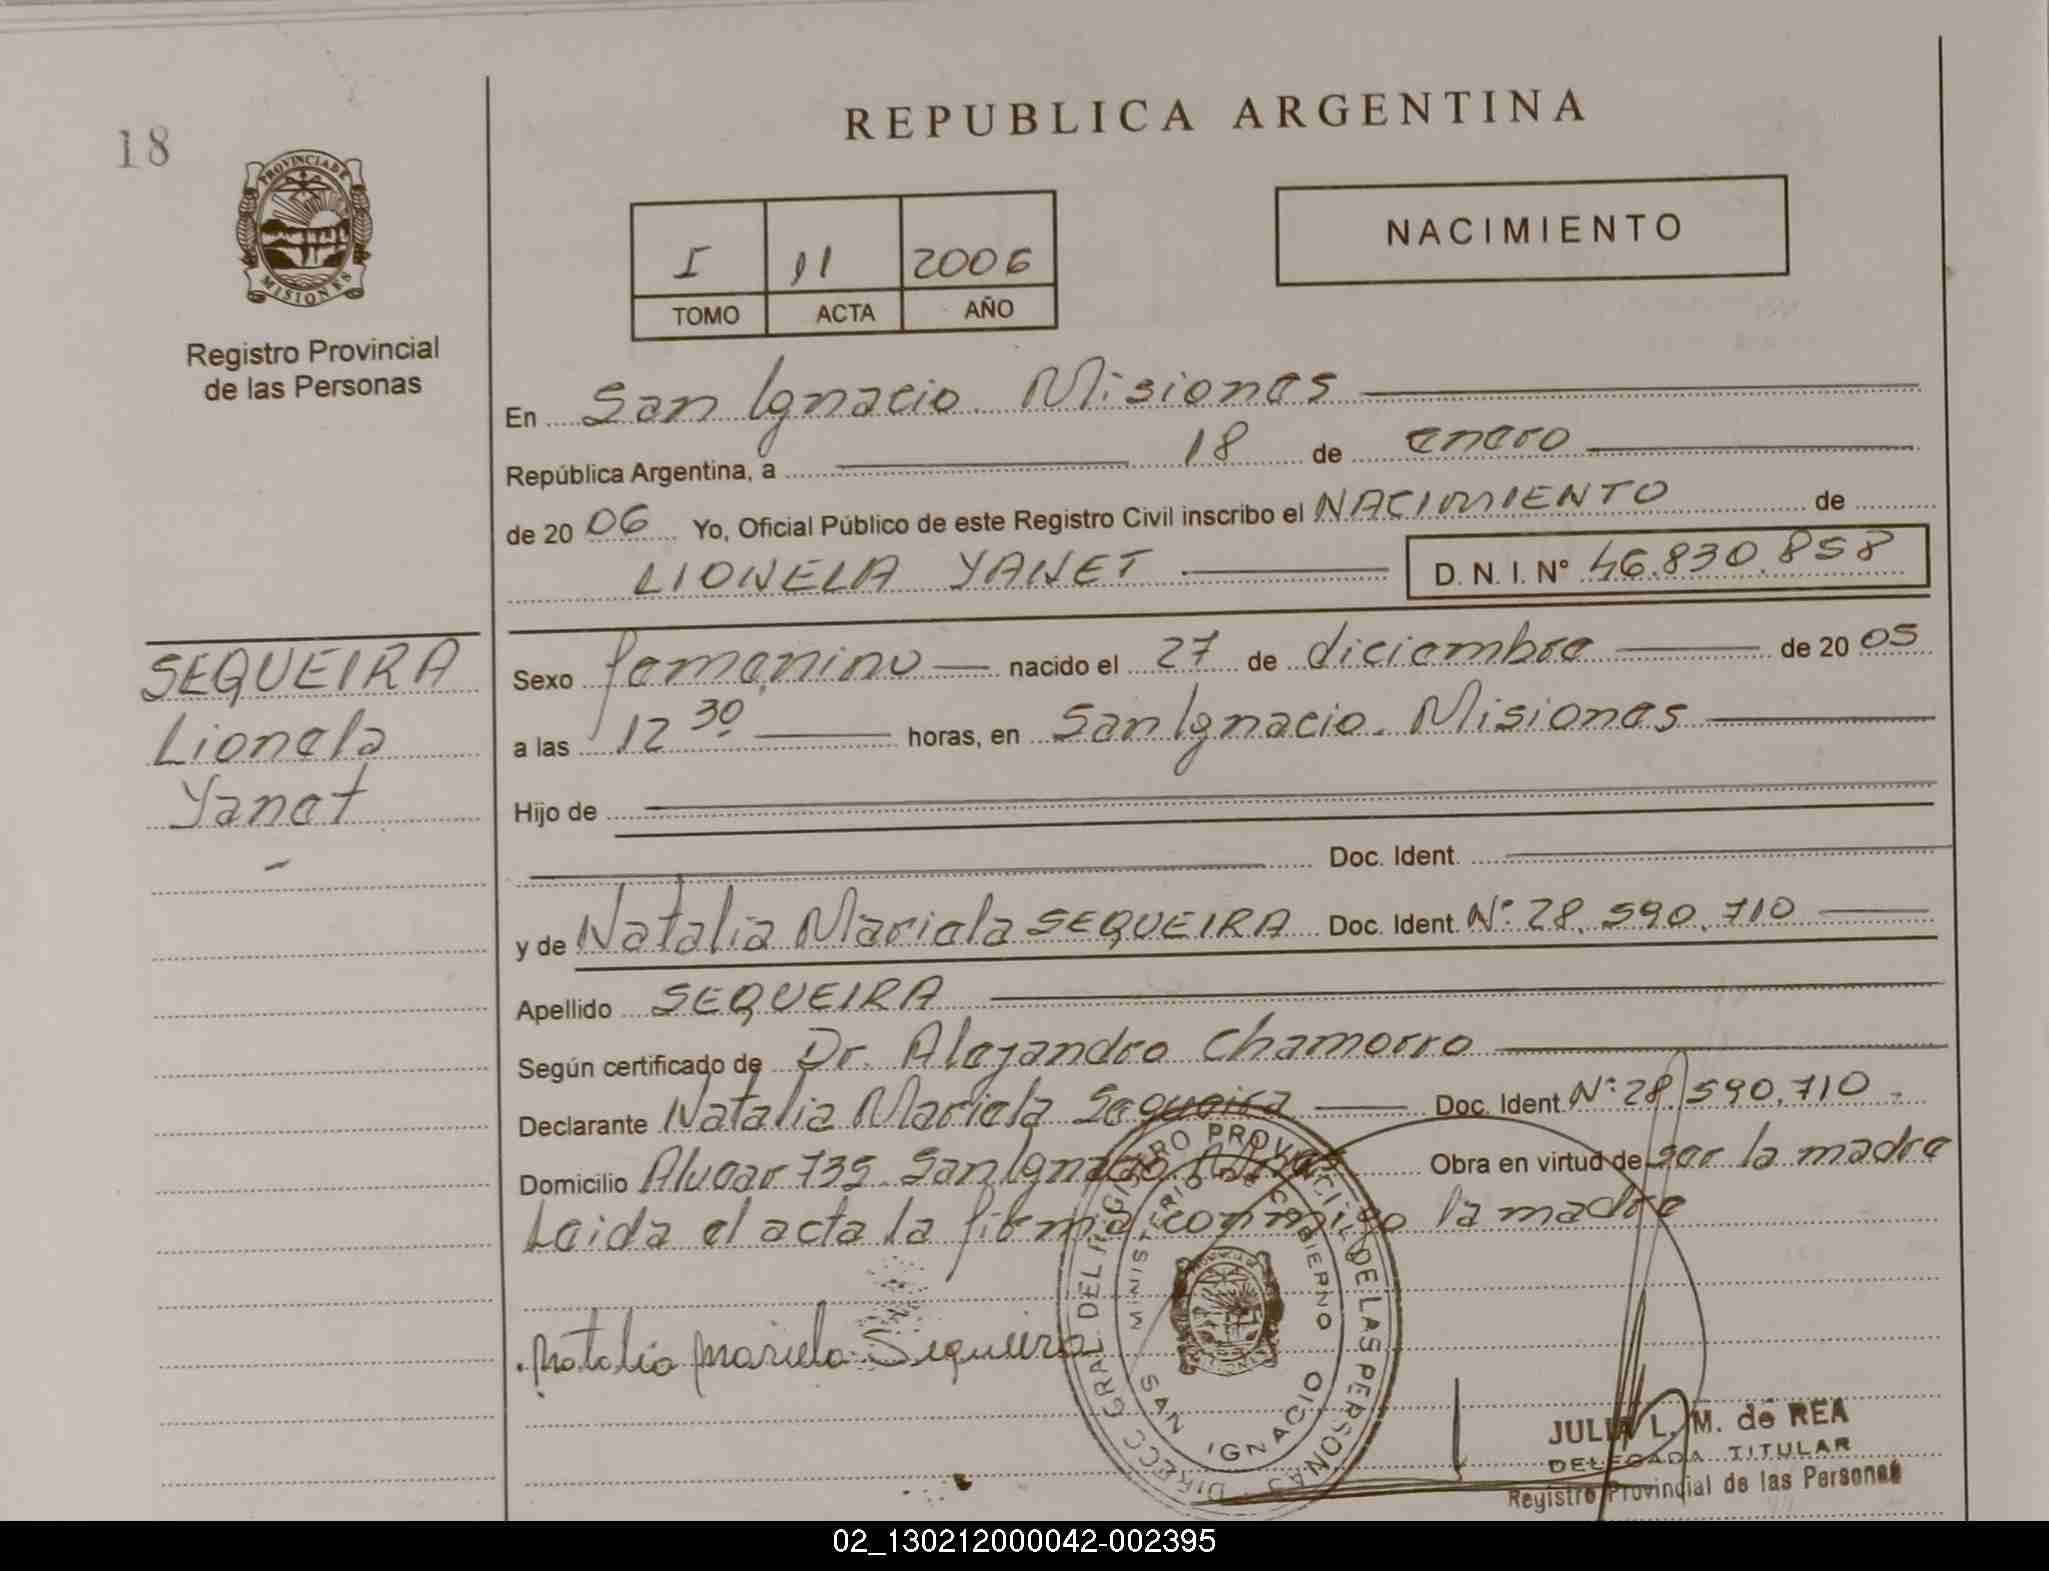 18
REPUBLICA ARGENTINA
PROVINCIA DE
MISIONES
NACIMIENTO
I 11 2006
TOMO ACTA AÑO
Registro Provincial
de las Personas
En San Ignacio Misiones
República Argentina, a 18 de enero
de 20 06 Yo, Oficial Público de este Registro Civil inscribo el NACIMIENTO de
LIONELA YANET D. N. I. Nº 46.830.858
SEQUEIRA
Lionela
Yanet
Sexo femenino nacido el 27 de diciembre de 20 05
a las 12 30 horas, en San Ignacio. Misiones
Hijo de
Doc. Ident.
y de Natalia Mariela SEQUEIRA Doc. Ident. Nº: 28.590.710
Apellido SEQUEIRA
Según certificado de Dr. Alejandro Chamorro
Declarante Natalia Mariela Sequeira Doc. Ident. Nº: 28.590.710.
Domicilio Alvear 735. San Ignacio Obra en virtud de ser la madre
Leida el acta la firma conmigo la madre
Natalia Mariela Sequeira
DIRECC GRAL DEL REGISTRO PROVINCIAL DE LAS PERSONAS
MINISTERIO DE GOBIERNO
SAN IGNACIO
JULIA L. M. de REA
DELEGADA TITULAR
Registro Provincial de las Personas
02_130212000042-002395